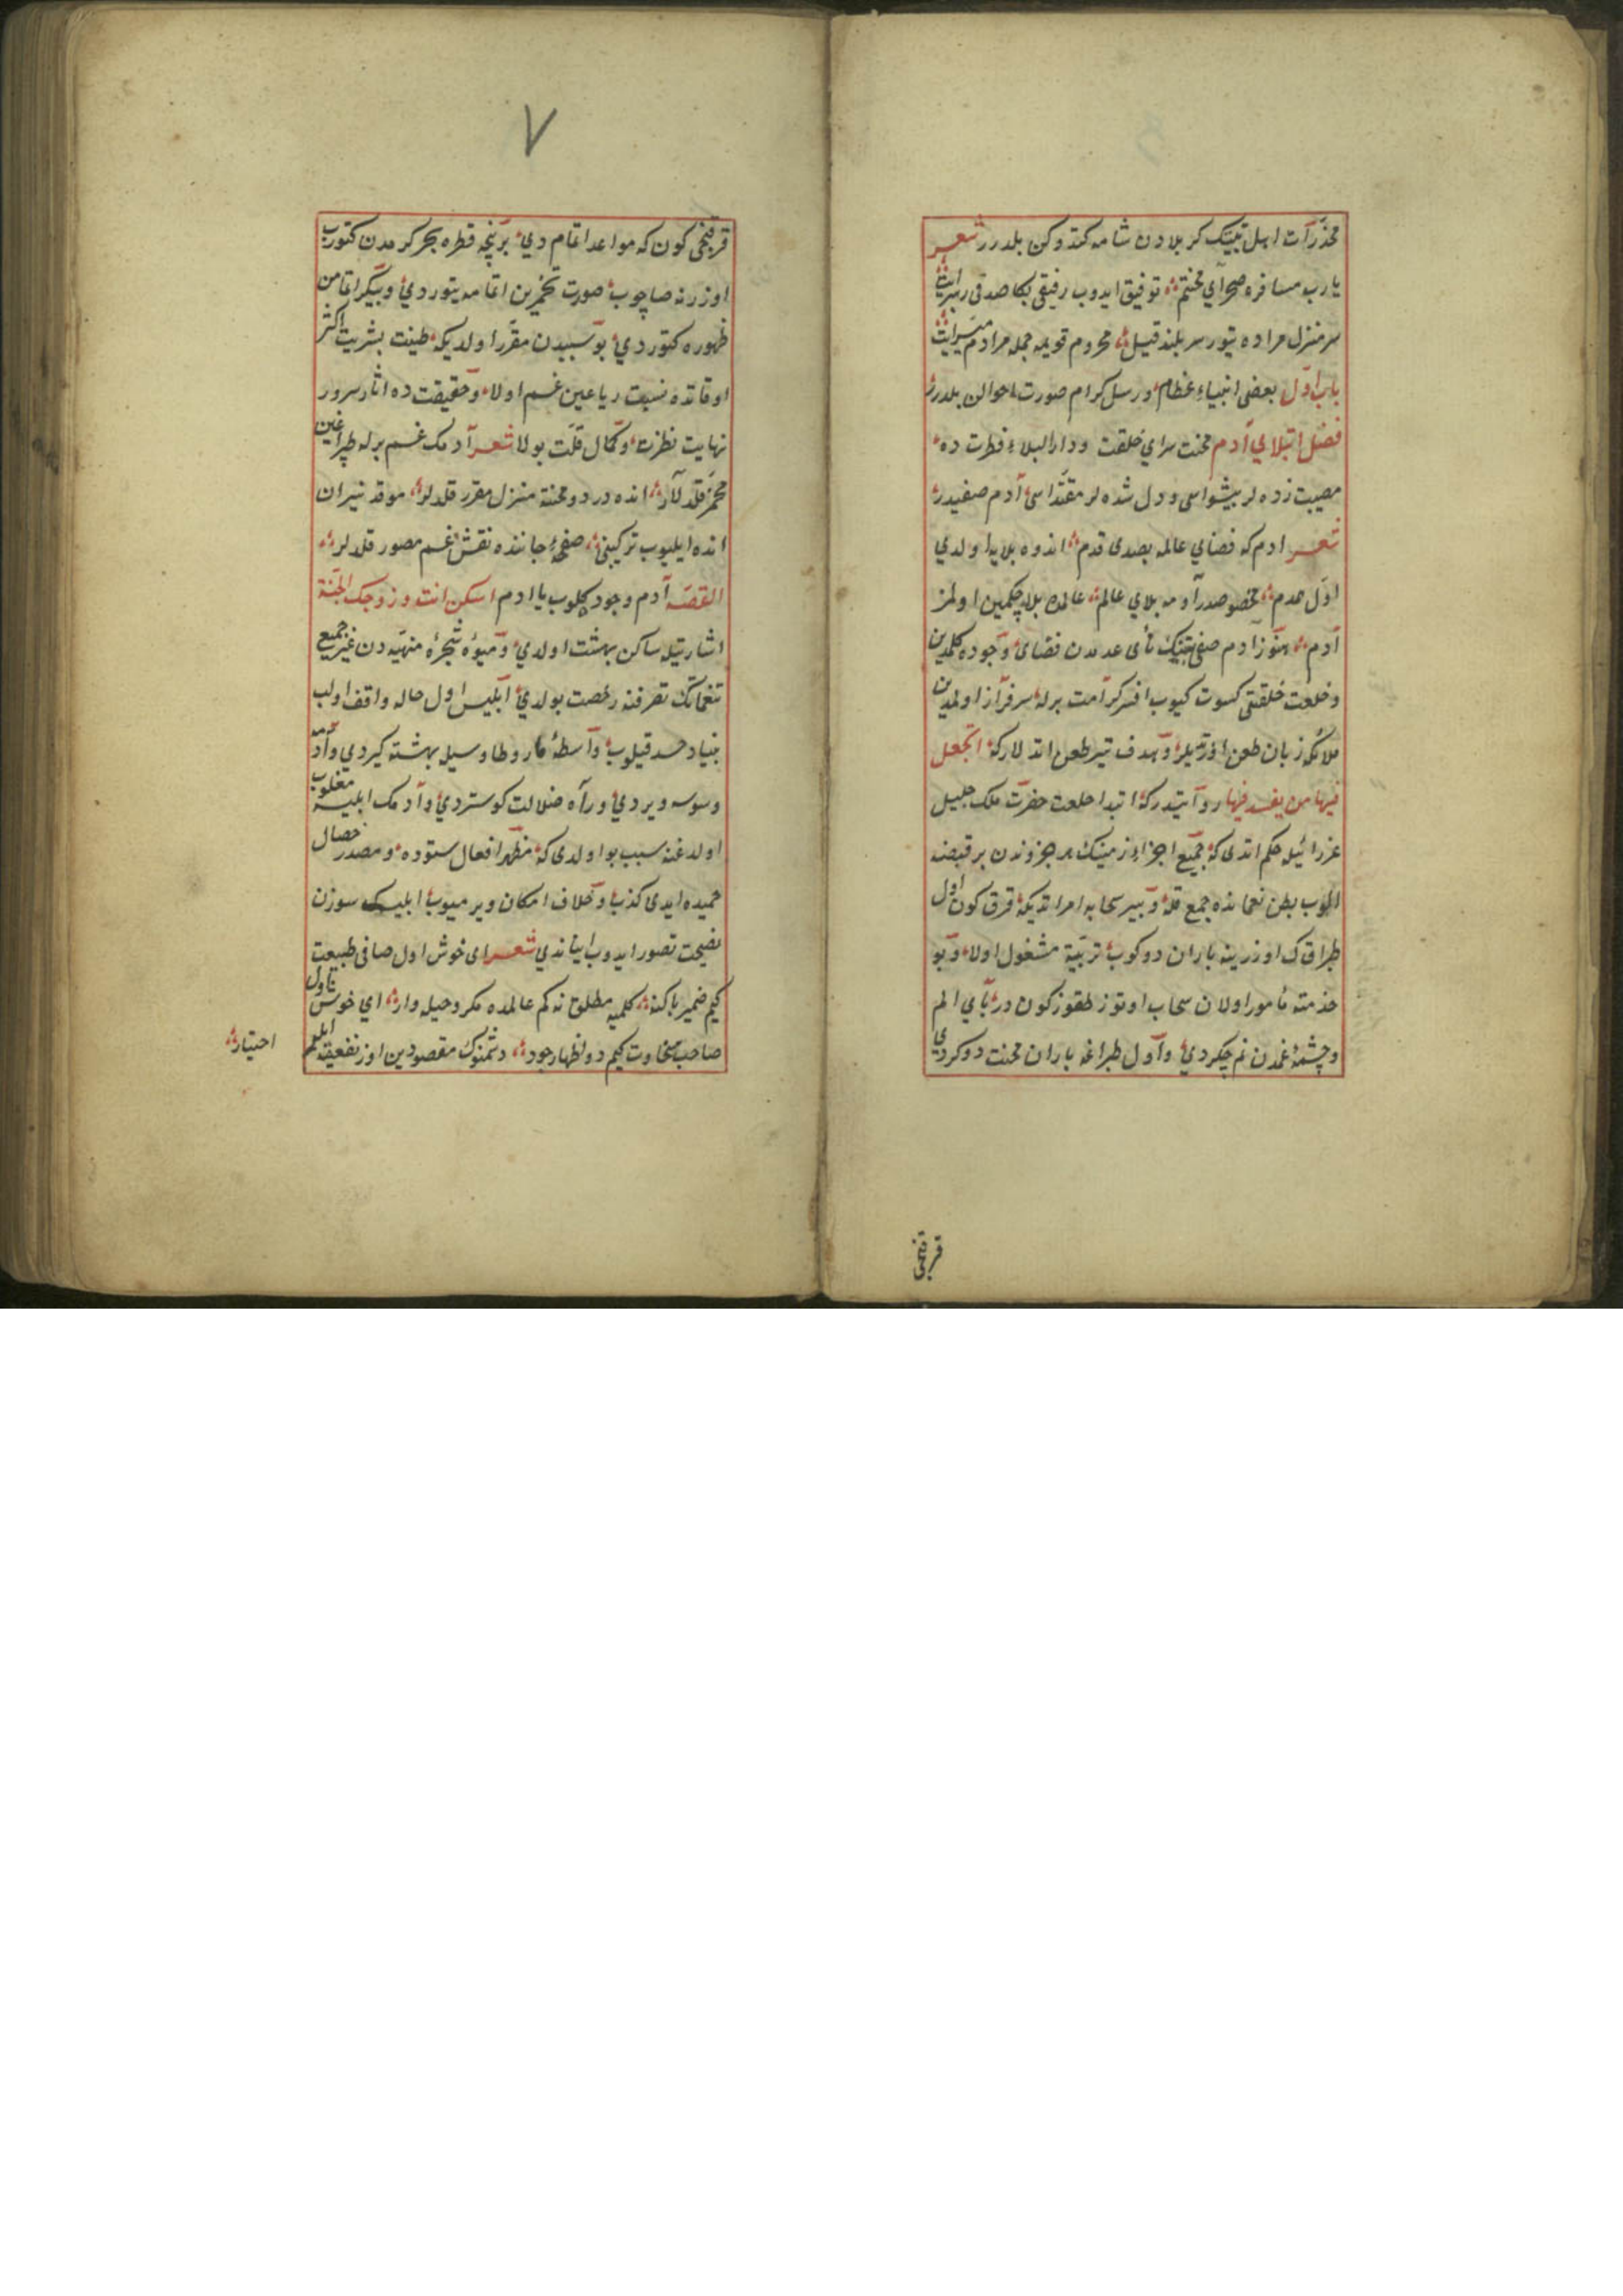 مخدرات اهل بیتینک کربلادن شامه کتدوکن بلدرر شعر
یارب مسافره صحرای محنتم توفیق ایدوب رفیقی بکا صدقی رهبر ایت
سر منزل مراده یتور سربلند قیل محروم قویمه جمله مرادم میسر ایت
باب اول بعضی انبیاء عظام و رسل کرام صورت احوالن بلدرر
فصل ابتلای آدم محنت سرای خلقت و دار البلاء فطرت ده
مصیبت زده لر پیشواسی و دل شده لر مقتداسی آدم صفیدر
شعر ادم که فضای عالمه بصدی قدم اندوه بلایه اولدی
اول همدم مخصوصدر آدمه بلای عالم عالمده بلا چکمین اولمز
آدم هنوز آدم صفی تنگنای عدمدن فضای وجوده کلمدین
و خلعت خلقتی کسوت کیوب افسر کرامت برله سرفراز اولمدین
ملائکه زبان طعن اوزتیلر و هدف تیر طعن اتدلار که اتجعل
فیها من یفسد فیها روایتدر که ابتدا خلعت حضرت ملک جلیل
عزرائیله حکم اتدی که جمیع اجزاء زمینک هر جزوندن بر قبضه
الوب بطن نعمانده جمع قله و بیر سحابه امر اتدیکه قرق کون اول
طبراق ک اوزرینه باران دوکوب تربیة مشغول اولا و بو
خذمته مأمور اولان سحاب اوتوز طقوز کون دریای الم
و چشمهٔ غمدن نم چکردی و اول طبراغه باران محنت دوکردی
قرقنجی
۷
قرقنجی کون که مواعد اتمام دی برنچه قطره بحر کرمدن کتورب
اوزرنه صاچوب صورت تخمرین اتمامه یتوردی و پیکر اتمامن
ظهوره کتوردی بو سببدن مقرر اولدیکه طینت بشریت اکثر
اوقاتده عین غم اولا و حقیقت ده اثار سرور
نهایت و کمال قلت بولا شعر آدمک غم برله طپراغین
مخمر قلدلار انده درد و محنة منزل مقرر قلدلر موقد نیران
انده ایلیوب ترکیبنی صفحهٔ جاننده نقش غم مصور قلدلر
القصه آدم وجود کلوب یا ادم اسکن انت و زوجک الجنة
اشارتیله ساکن بهشت اولدی و میوهٔ شجرهٔ منهیه دن غیر جمیع
تنعماتک تصرفنه رخصت بولدی ابلیس اول حاله واقف اولب
بنیاد حسد قیلوب واسطهٔ مار و طاوسیله بهشته کیردی و آدمه
وسوسه ویردی و راه ضلالت کوستردی و آدمک ابلیسه مغلوب
اولدغنه سبب بو اولدی که مظهر افعال ستوده و مصدر خصال
حمیده ایدی کذب و خلاف امکان ویرمیوب ابلیسک سوزن
نصیحت تصور ایدوب ایناندی شعر ای خوش اول صافی طبیعت
کیم ضمیر پاکنه کلمیه مطلق نه کم عالمده مکر و حیله وار ای خوش اول
صاحب سخاوت کیم دو اظهار جود دشمنوک مقصودین اوز نفعیته ایلیم
اختیار